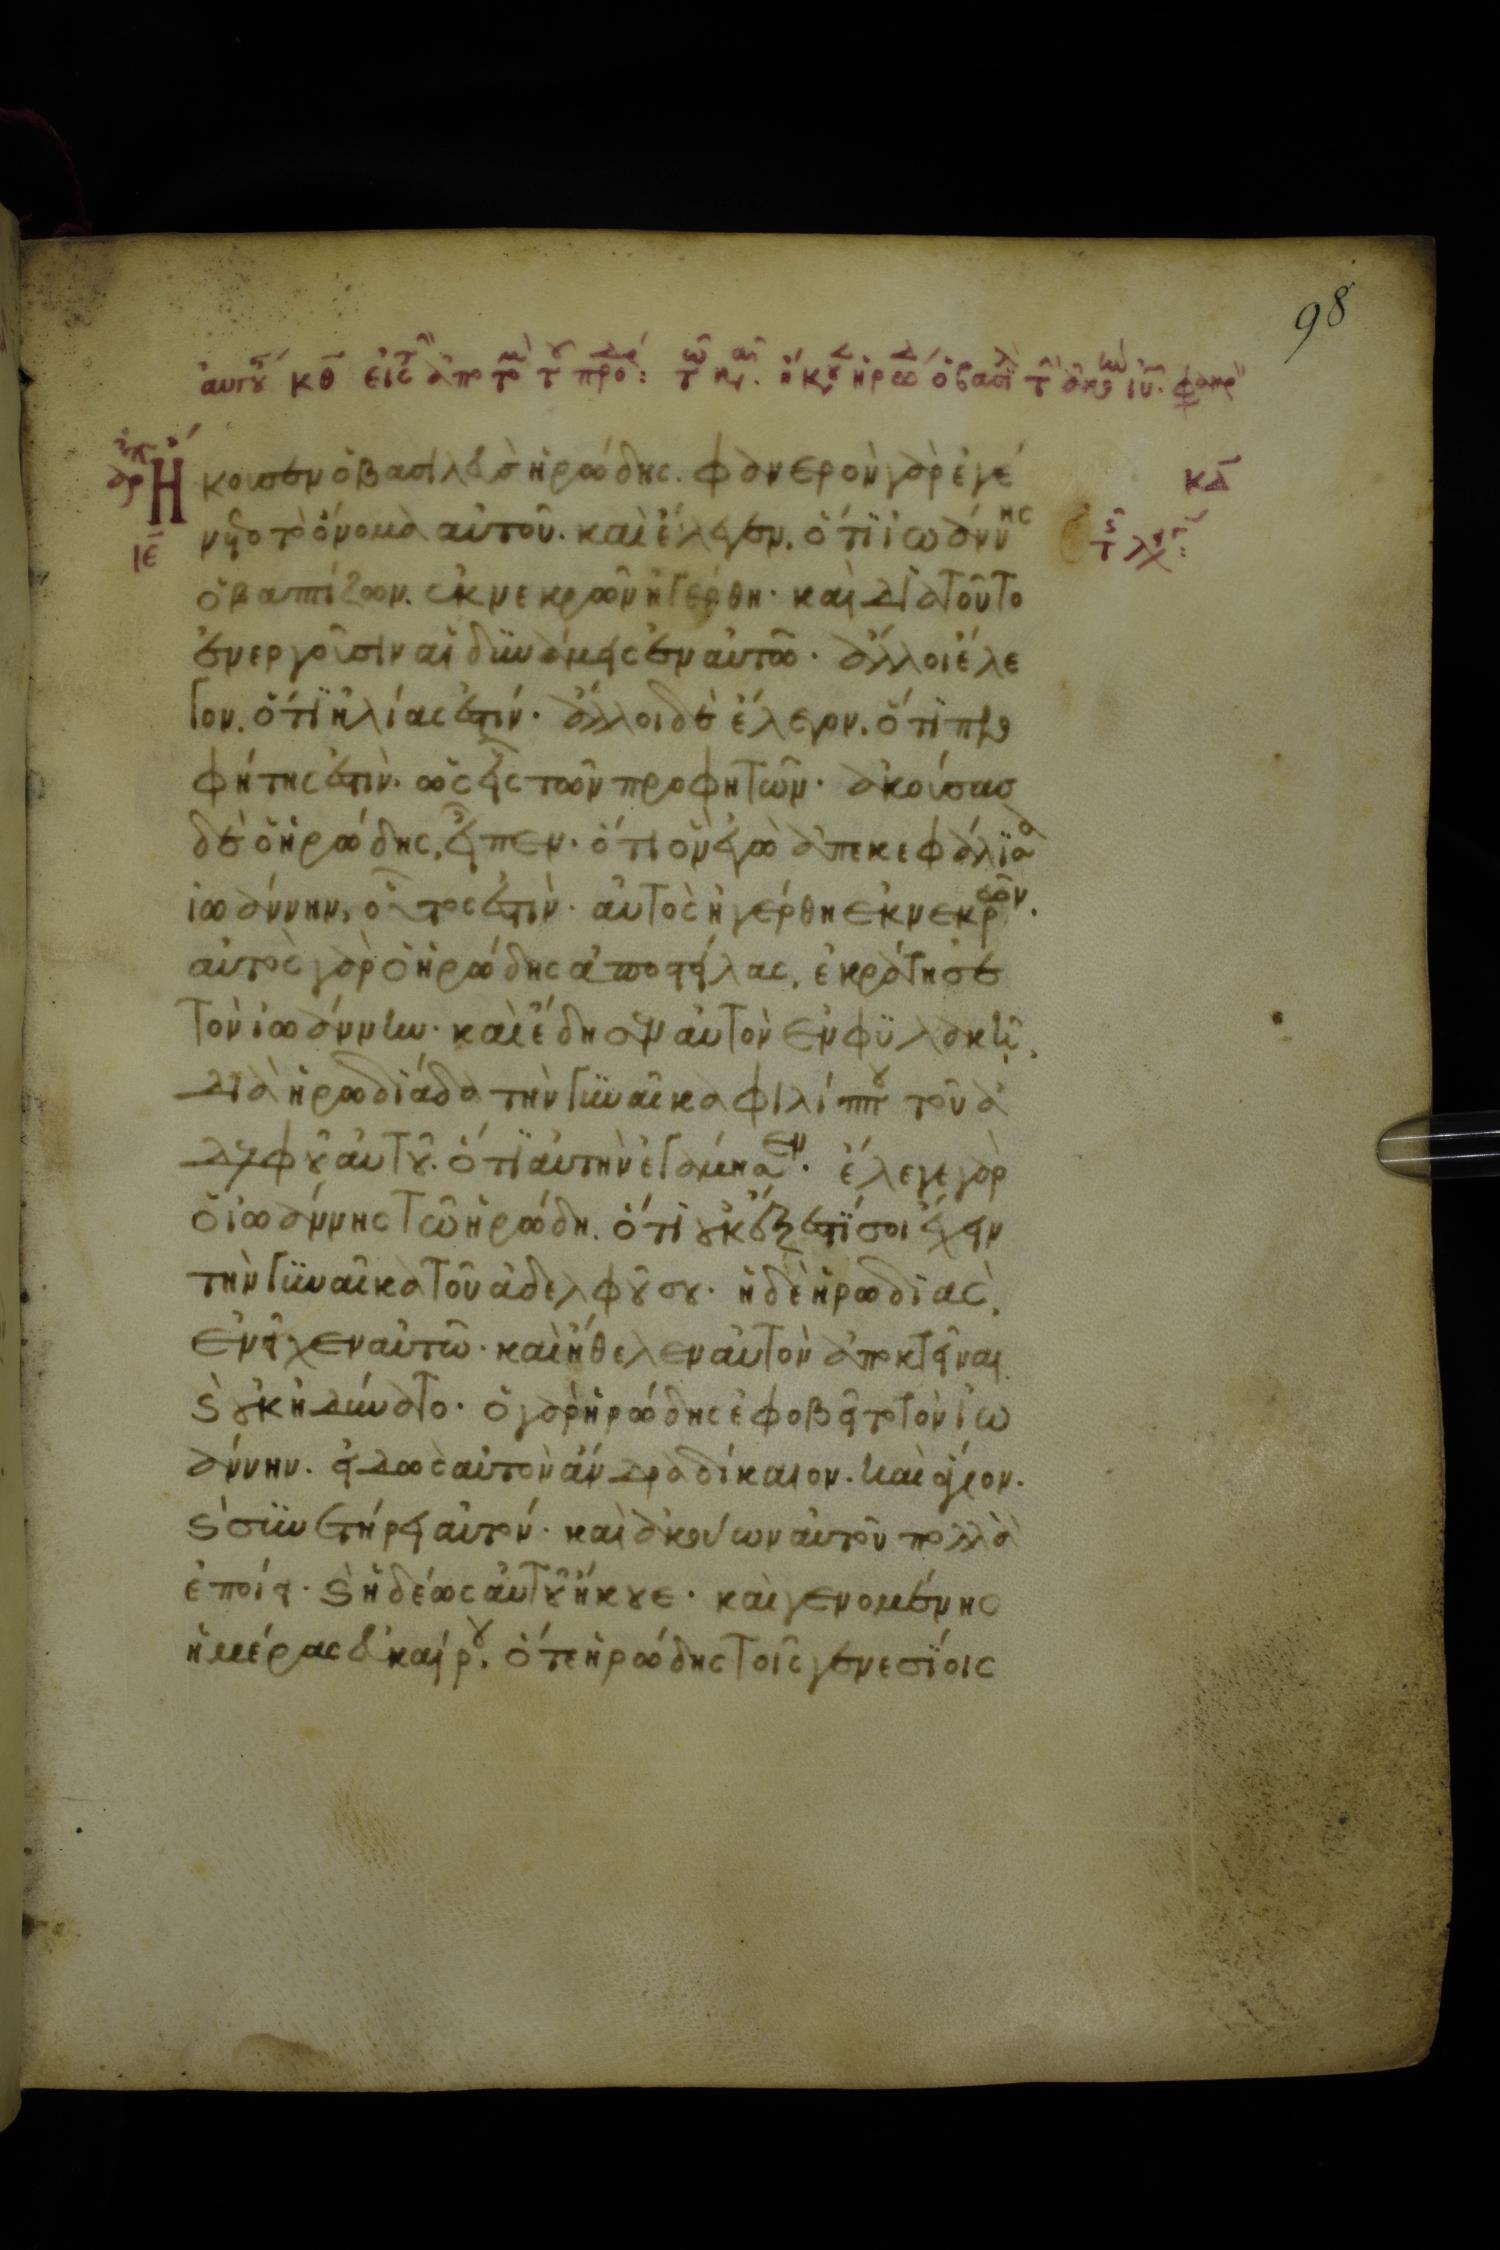 98
αυγού κθ εἰς τ ἀποτο τ προ: τ κ. ἤκου ἡρω ὁ βασι τ ἀκο ιυ. φανερ
ἀρχ
κδ
Ἤκουσεν ὁ βασιλεὺς ἡρώδης. φανερὸν γὰρ ἐγέ
ιε
νετο τὸ ὄνομα αὐτοῦ. καὶ ἔλεγεν. ὅτι ἰωάννης
ὁ βαπτίζων. ἐκ νεκρῶν ἠγέρθη. καὶ διατοῦτο
ἐνεργοῦσιν αἱ δυνάμεις ἐν αὐτῶ. ἄλλοι ἔλε
γον. ὅτι ἠλίας ἐστίν. ἄλλοι δὲ ἔλεγον. ὅτι προ
φήτης ἐστὶν. ὡς εἷς τῶν προφητῶν. ἀκούσας
δὲ ὁ ἡρώδης, εἶπεν. ὅτι ὃν ἐγὼ ἀπεκεφάλισα
ἰωάννην, οὗτος ἐστὶν. αὐτὸς ἠγέρθη ἐκ νεκρῶν.
αὐτὸς γὰρ ὁ ἡρώδης ἀποστείλας, ἐκράτησε
τὸν ἰωάννην. καὶ ἔδησεν αὐτὸν ἐν φυλακῆ,
διὰ ἡρωδιάδα τὴν γυναῖκα φιλίππου τοῦ ἀ
δελφοῦ αὐτοῦ. ὅτι αὐτὴν ἐγάμησεν. ἔλεγε γὰρ
ὁ ἰωάννης τῶ ἡρώδη. ὅτι οὐκ ἔξεστί σοι ἔχειν
τὴν γυναῖκα τοῦ ἀδελφοῦ σου. ἡ δὲ ἡρωδιὰς,
ἐνεῖχεν αὐτῶ. καὶ ἤθελεν αὐτὸν ἀποκτεῖναι
ϛ οὐκ ἠδύνατο. ὁ γὰρ ἡρώδης ἐφοβεῖτο τὸν ἰω
άννην. εἰδὼς αὐτὸν ἄνδρα δίκαιον. καὶ ἅγιον.
ϛ συνετήρει αὐτόν. καὶ ἀκούων αὐτοῦ πολλὰ
ἐποίει. ϛ ἡδέως αὐτοῦ ἤκουε. καὶ γενομένης
ἡμέρας εὐκαίρου. ὅτε ἡρώδης τοῖς γενεσίοις